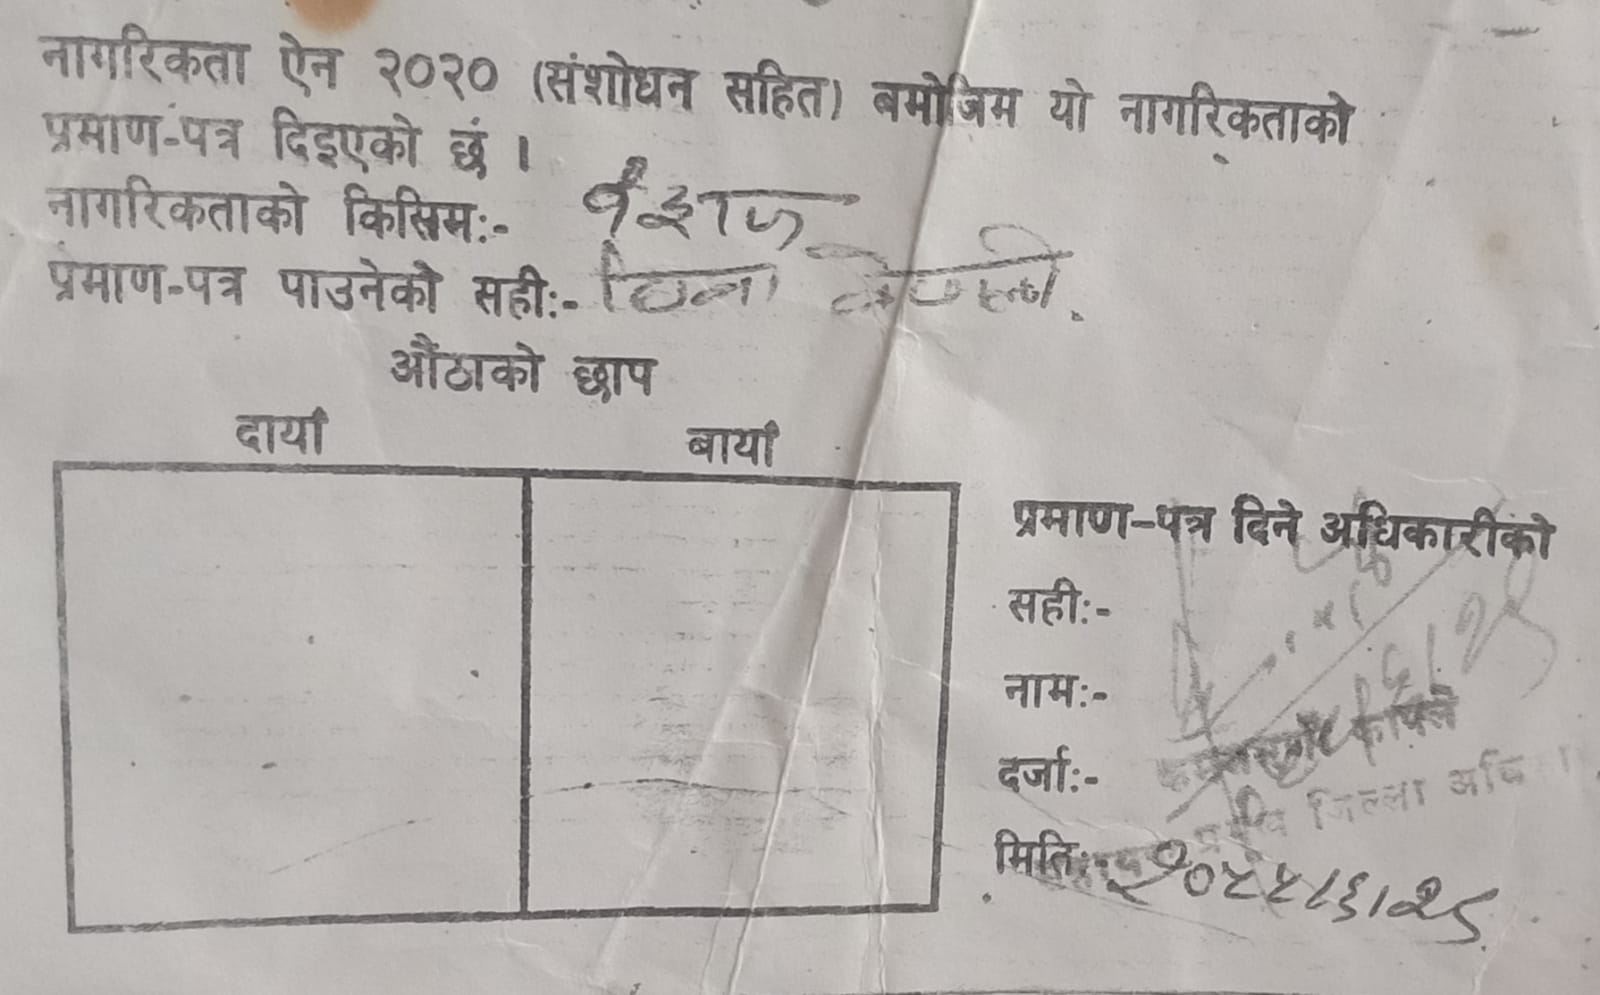 नागरिकता ऐन २०२० (संशोधन सहित) बमोजिम यो नागरिकताको
प्रमाण-पत्र दिइएको छ ।
नागरिकताको किसिमः- वंशज
प्रमाण-पत्र पाउनेको सहीः-
औंठाको छाप
दायाँ बायाँ
प्रमाण-पत्र दिने अधिकारीको
सहीः-
नामः-
दर्जाः- जिल्ला
मितिः- २०५५/६/२५